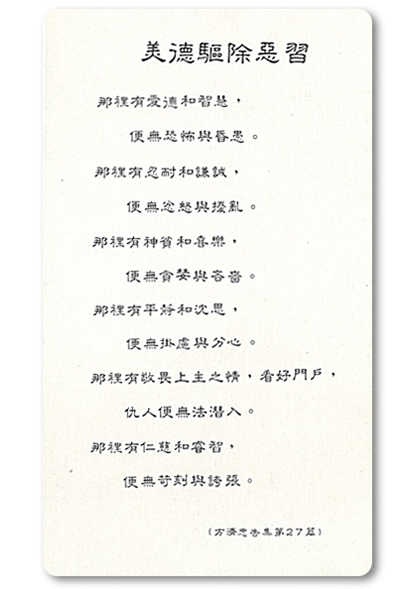 美德驅除惡習
那裡有愛德和智慧，
便無恐怖與昏愚。
那裡有忍耐和謙誠，
便無忿怒與擾亂。
那裡有神貧和喜樂，
便無貪婪與吝嗇。
那裡有平靜和沈思，
便無掛慮與分心。
那裡有敬畏上主之情，看好門戶，
仇人便無法潛入。
那裡有仁慈和睿智，
便無苛刻與誇張。
（方濟忠告集第27篇）